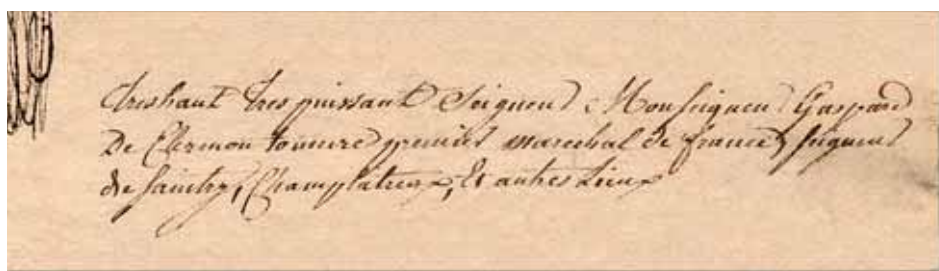 treshaut tres puissant Seigneur Monseigneur Gaspard
De Clermon tonnerre premier marechal de france, seigneur
de saintry, Champlatreux, Et autres Lieux